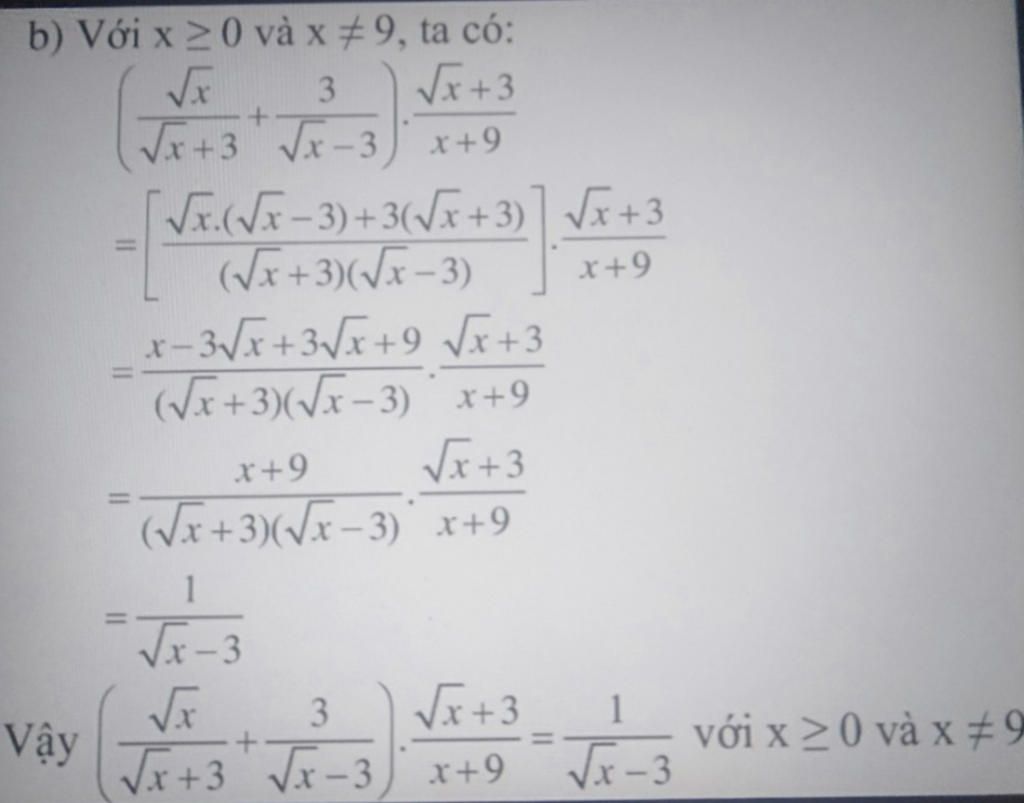 b) Với x ≥ 0 và x ≠ 9, ta có:
(√x/(√x+3) + 3/(√x−3)) . (√x+3)/(x+9)
= [(√x.(√x−3)+3(√x+3))/((√x+3)(√x−3))] . (√x+3)/(x+9)
= (x−3√x+3√x+9)/((√x+3)(√x−3)) . (√x+3)/(x+9)
= (x+9)/((√x+3)(√x−3)) . (√x+3)/(x+9)
= 1/(√x−3)
Vậy (√x/(√x+3) + 3/(√x−3)) . (√x+3)/(x+9) = 1/(√x−3) với x ≥ 0 và x ≠ 9